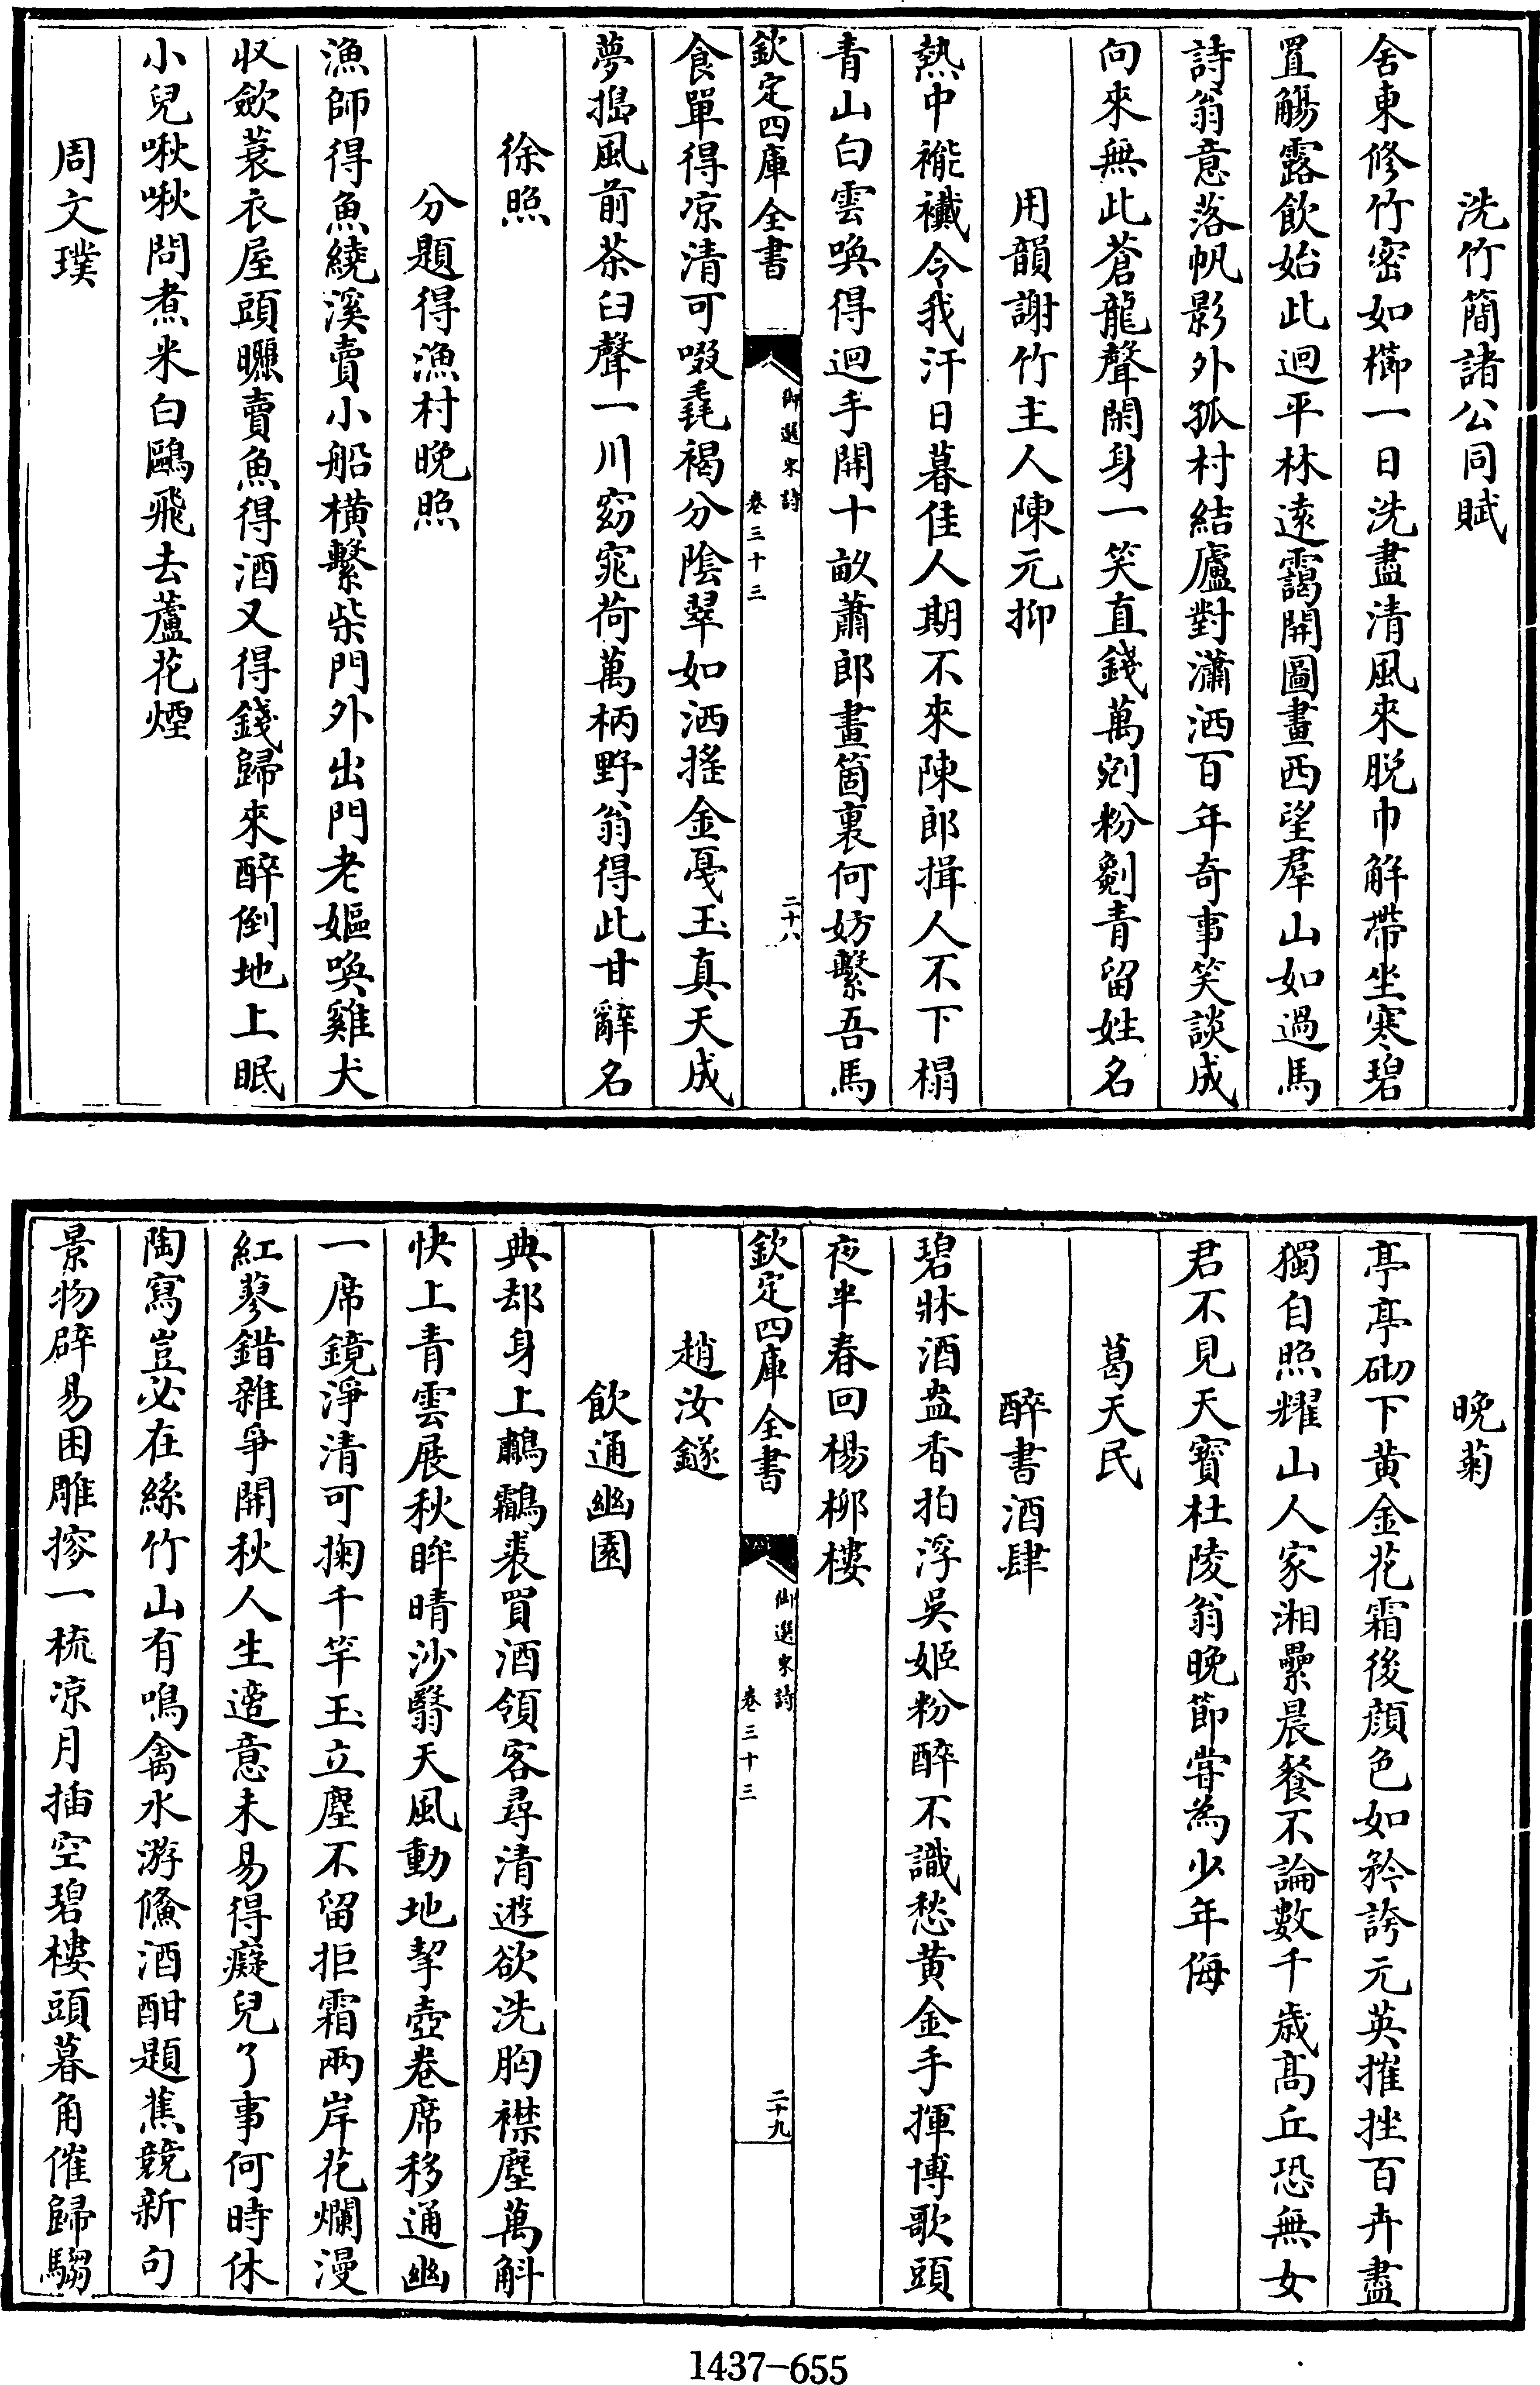 洗竹簡諸公同賦
舍東修竹密如櫛一日洗盡清風來脱巾解帶坐寒碧
置觴露飲始此迴平林遠靄開圖畫西望羣山如過馬
詩翁意落帆影外孤村結廬對瀟洒百年奇事笑談成
向來無此蒼龍聲閑身一笑直錢萬剜粉劖青留姓名
用韻謝竹主人陳元抑
熱中褦襶令我汗日暮佳人期不來陳郎揖人不下榻
青山白雲喚得迴手開十畝蕭郎畫箇裏何妨繫吾馬
欽定四庫全書
御選宋詩
卷三十三
二十八
食單得凉清可啜毳褐分陰翠如洒搖金戞玉真天成
夢搗風前茶臼聲一川窈窕荷萬柄野翁得此甘辭名
徐照
分題得漁村晚照
漁師得魚繞溪賣小船橫繫柴門外出門老嫗喚雞犬
収歛蓑衣屋頭曬賣魚得酒又得錢歸來醉倒地上眠
小兒啾啾問煮米白鷗飛去蘆花煙
周文璞
晚菊
亭亭砌下黄金花霜後顔色如矜誇元英摧挫百卉盡
獨自照耀山人家湘纍晨餐不論數千歳髙丘恐無女
君不見天寳杜陵翁晚節嘗為少年侮
葛天民
醉書酒肆
碧牀酒盎香拍浮吳姬粉醉不識愁黄金手揮博歌頭
夜半春回楊柳樓
欽定四庫全書
御選宋詩
卷三十三
二十九
趙汝鐩
飲通幽園
典却身上鷫鸘裘買酒領客尋清遊欲洗胸襟塵萬斛
快上青雲展秋眸晴沙翳天風動地挈壺卷席移通幽
一席鏡淨清可掬千竿玉立塵不留拒霜兩岸花爛漫
紅蓼錯雜爭開秋人生適意未易得癡兒了事何時休
陶寫豈必在絲竹山有鳴禽水游鯈酒酣題蕉競新句
景物辟易困雕搜一梳凉月插空碧樓頭暮角催歸騶
1437-655